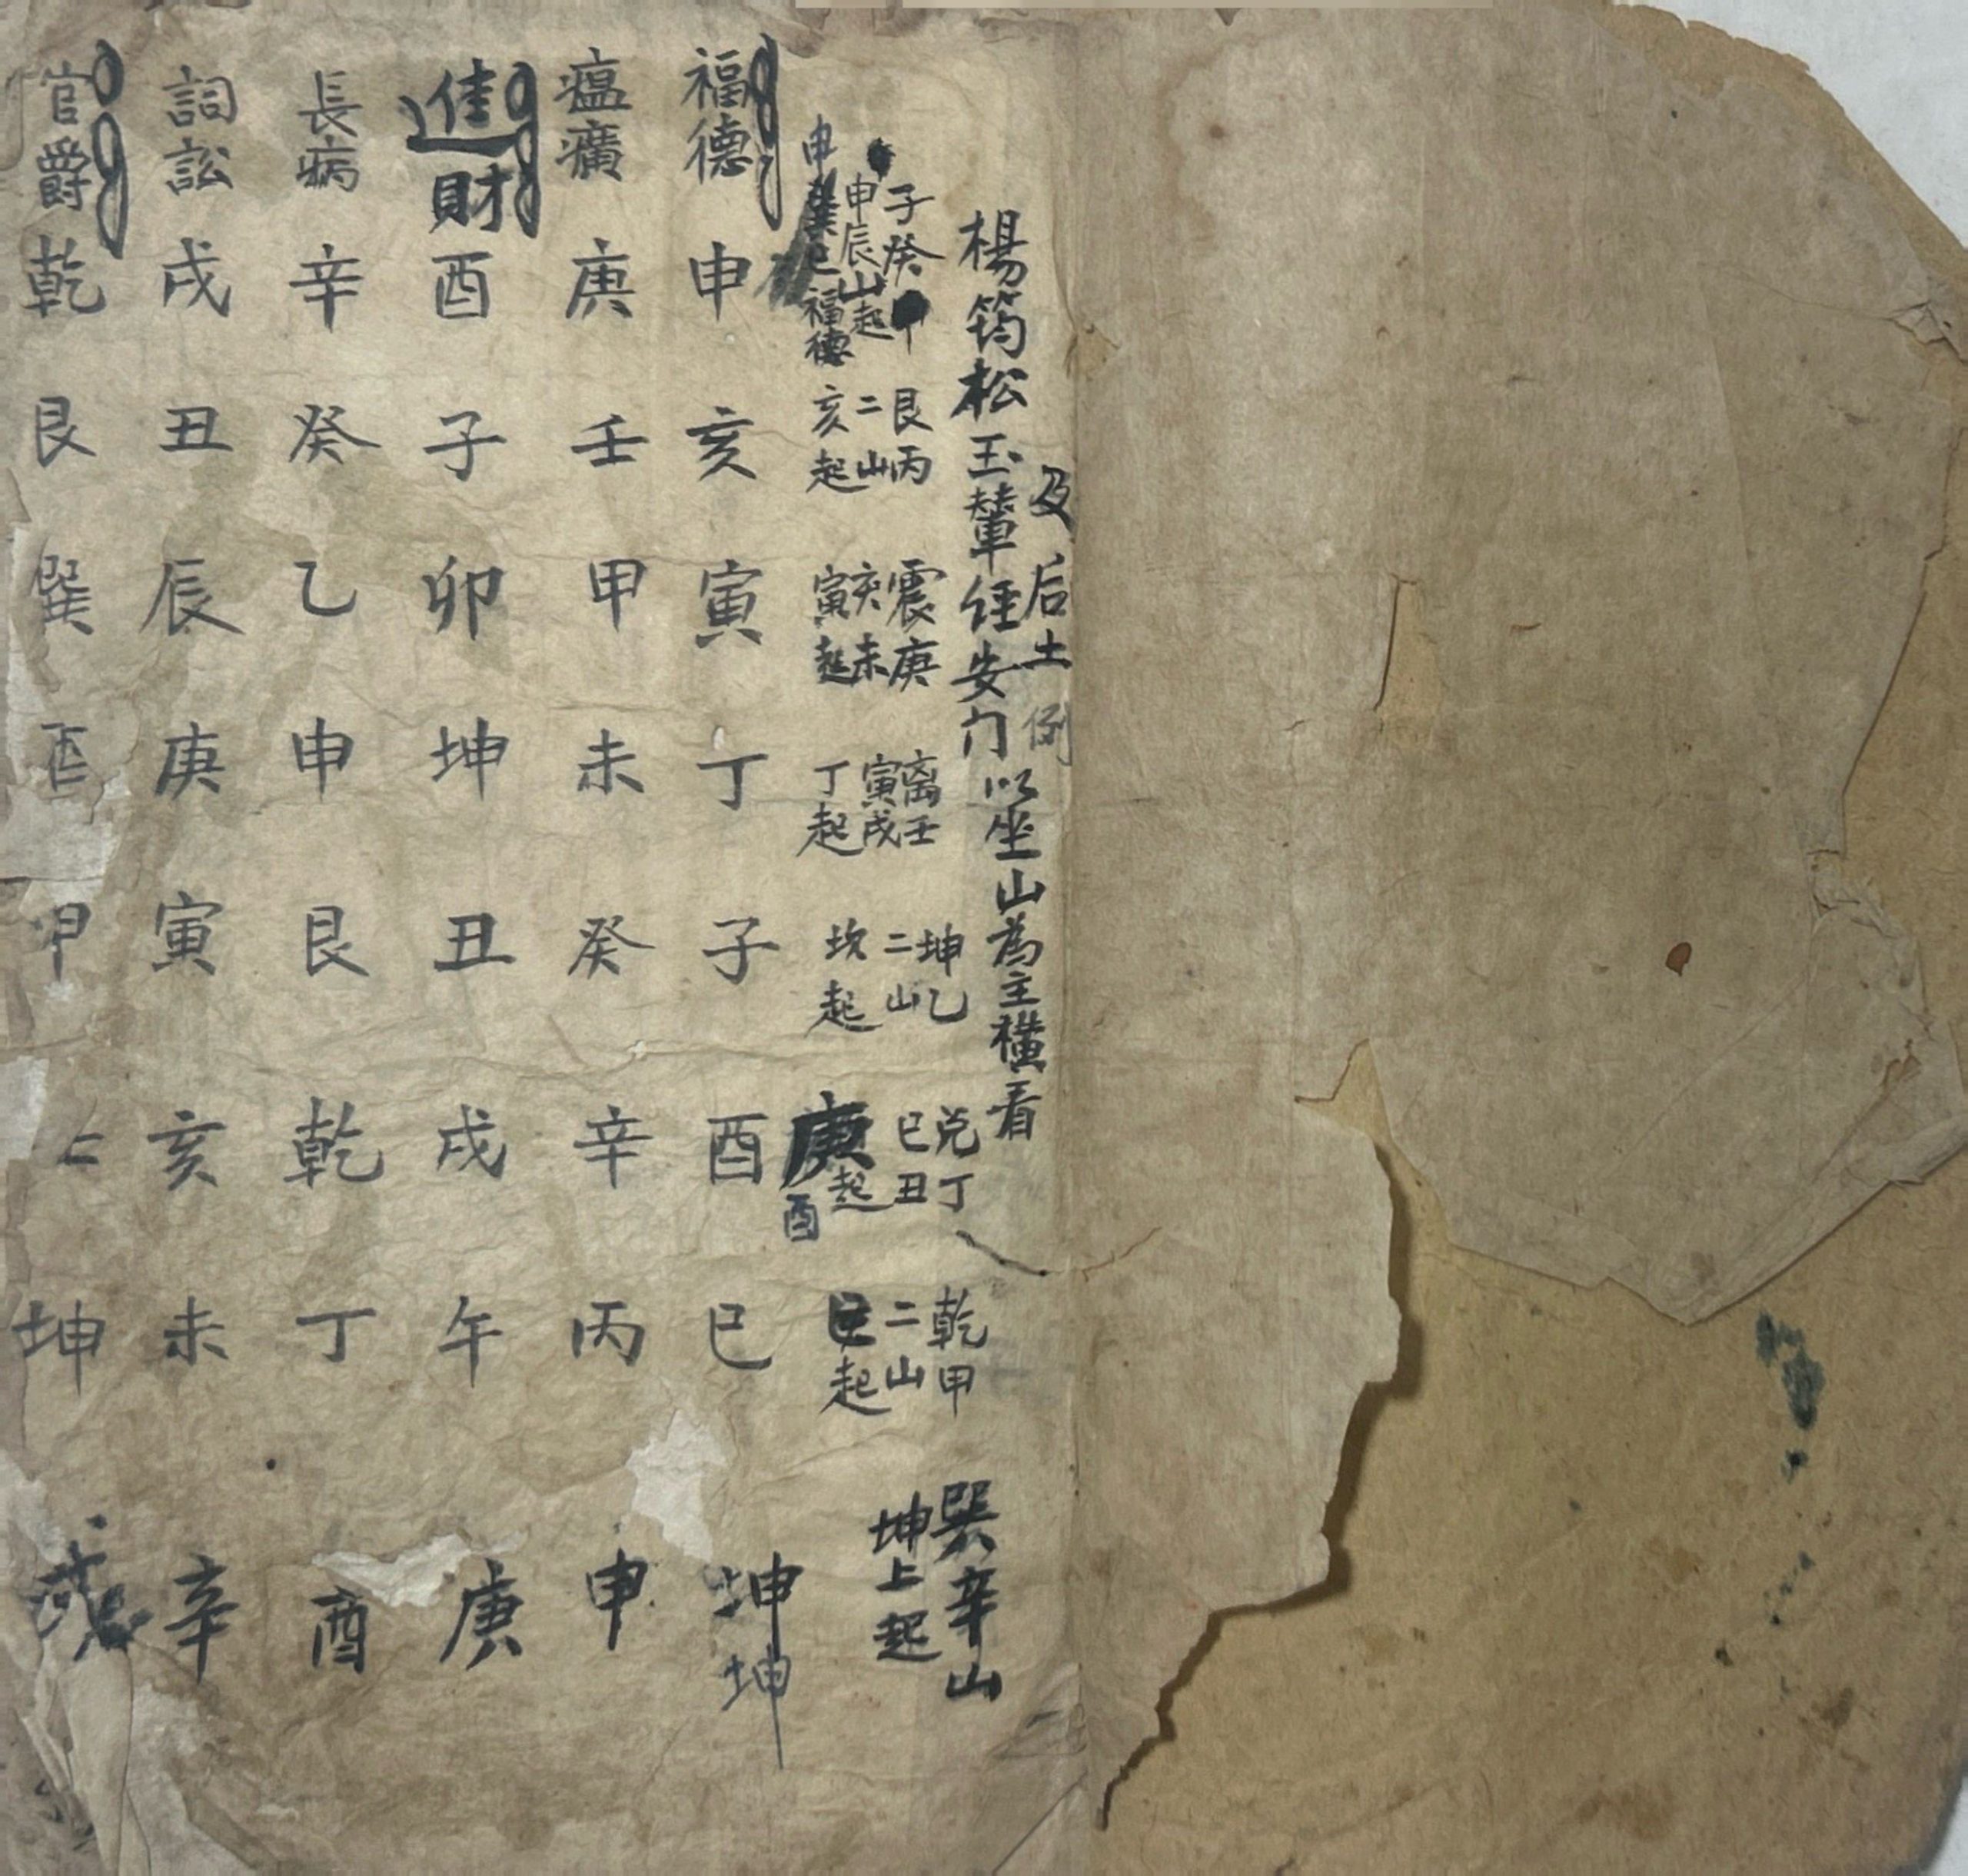 楊筠松玉輦經安门以坐山為主橫看
及后土例
子癸申辰山起福德
艮丙二山亥起
震庚亥未寅起
离壬寅戌丁起
坤乙二山坎起
兑丁巳丑庚起酉
乾甲二山巳起
巽辛山坤上起
福德 申 亥 寅 丁 子 酉 巳 坤 坤
瘟㾠 庚 壬 甲 未 癸 辛 丙 申
進財 酉 子 卯 坤 丑 戌 午 庚
長病 辛 癸 乙 申 艮 乾 丁 酉
詞訟 戌 丑 辰 庚 寅 亥 未 辛
官爵 乾 艮 巽 酉 甲 坤